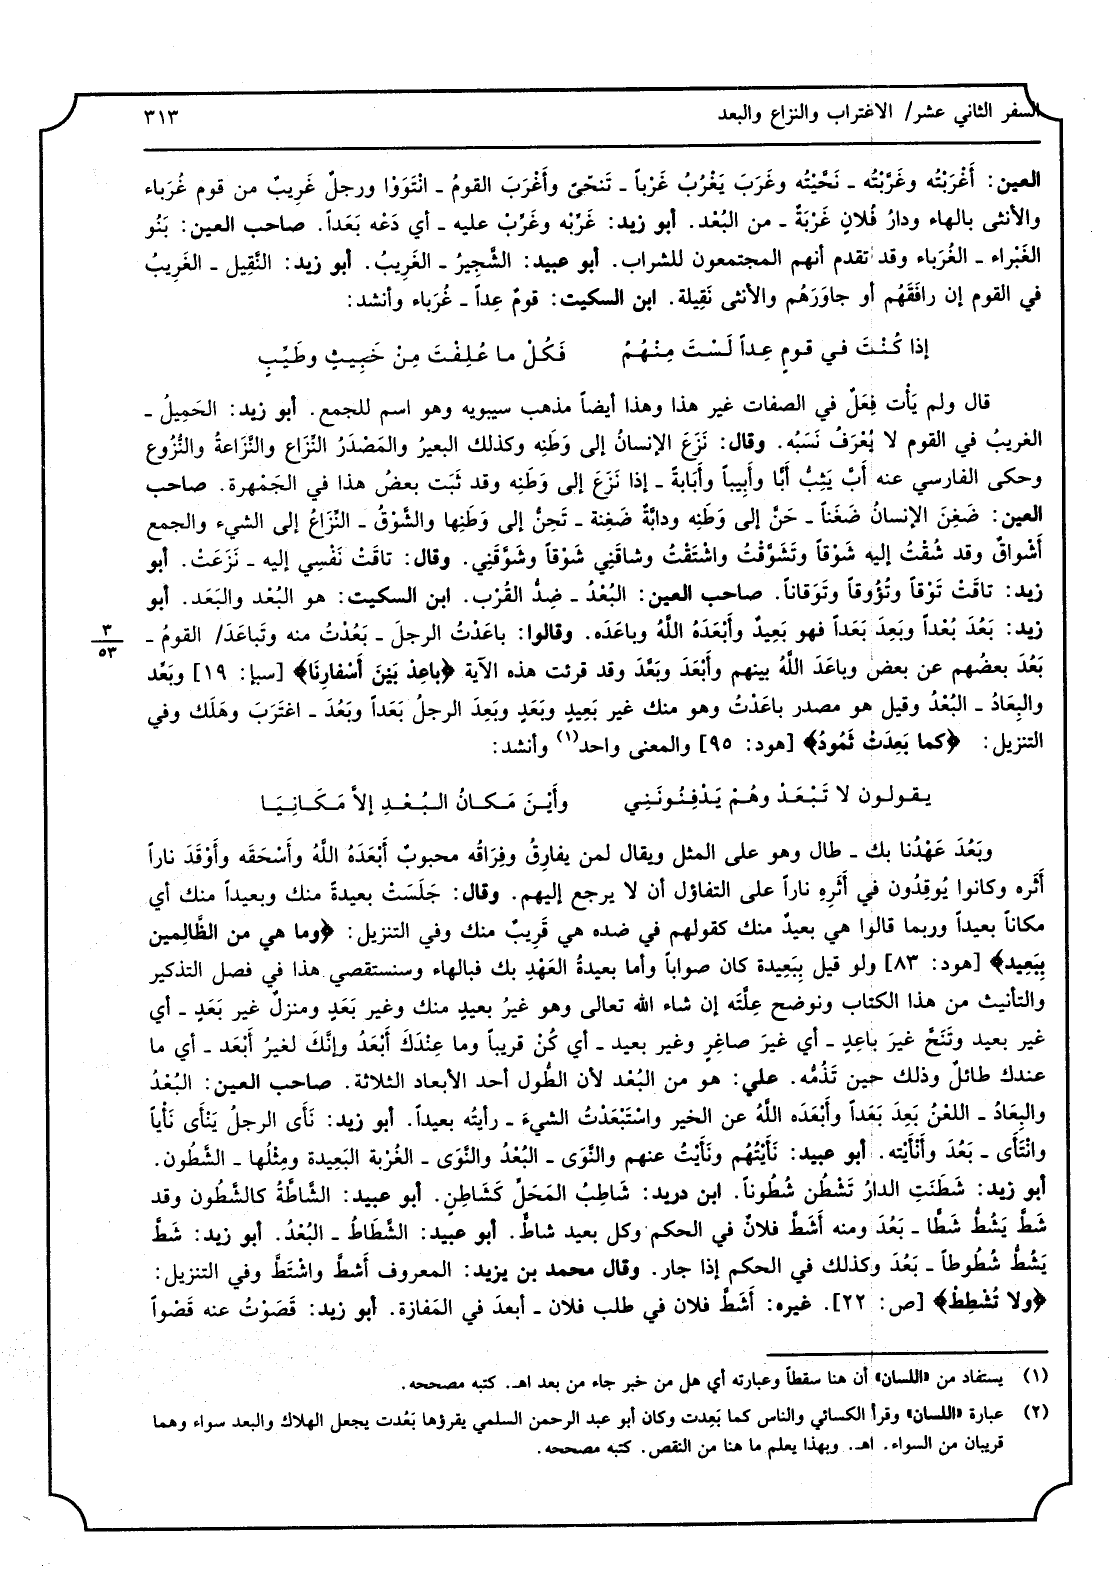 السفر الثاني عشر/ الاغتراب والنزاع والبعد ٣١٣
العين: أَغْرَبْتُه وغَرَّبْتُه ـ نَحَّيْتُه وغَرَبَ يَغْرُبُ غَرْباً ـ تَنحّىٰ وأَغْرَبَ القومُ ـ انْتَوَوْا ورجلٌ غَرِيبٌ من قوم غُرَباء
والأنثى بالهاء ودارُ فُلانٍ غَرْبَةٌ ـ من البُعْد. أبو زيد: غَرِّبْه وغَرِّبْ عليه ـ أي دَعْه بَعَداً. صاحب العين: بَنُو
الغَبْراء ـ الغُرَباء وقد تقدم أنهم المجتمعون للشراب. أبو عبيد: الشَّجِيرُ ـ الغَرِيبُ. أبو زيد: النَّقِيل ـ الغَرِيبُ
في القوم إن رافَقَهُم أو جاوَرَهُم والأنثى نَقِيلة. ابن السكيت: قومٌ عِداً ـ غُرَباء وأنشد:
إذا كُنْتَ في قومٍ عِداً لَسْتَ مِنْهُمُ فَكُلْ ما عُلِفْتَ مِنْ خَبِيثٍ وطَيِّبٍ
قال ولم يَأْت فِعَلٌ في الصفات غير هذا وهذا أيضاً مذهب سيبويه وهو اسم للجمع. أبو زيد: الحَمِيلُ ـ
الغريبُ في القوم لا يُعْرَفُ نَسَبُه. وقال: نَزَعَ الإنسانُ إلى وَطَنِه وكذلك البعيرُ والمَصْدَرُ النِّزَاع والنَّزَاعةُ والنُّزُوع
وحكى الفارسي عنه أَبَّ يَئِبُّ أَبًّا وأَبِيباً وأَبَابةً ـ إذا نَزَعَ إلى وَطَنِه وقد ثَبَت بعضُ هذا في الجَمْهرة. صاحب
العين: ضَغِنَ الإنسانُ ضَغَناً ـ حَنَّ إلى وَطَنِه ودابَّةٌ ضَغِنة ـ تَحِنُّ إلى وَطَنِها والشَّوْقُ ـ النِّزَاعُ إلى الشيء والجمع
أَشْواقٌ وقد شُقْتُ إليه شَوْقاً وتَشَوَّقْتُ واشْتَقْتُ وشاقَنِي شَوْقاً وشَوَّقَنِي. وقال: تاقَتْ نَفْسِي إليه ـ نَزَعَتْ. أبو
زيد: تاقَتْ تَوْقاً وتُؤُوقاً وتَوَقاناً. صاحب العين: البُعْدُ ـ ضِدُّ القُرْب. ابن السكيت: هو البُعْد والبَعَد. أبو
زيد: بَعُدَ بُعْداً وبَعِدَ بَعَداً فهو بَعِيدٌ وأَبْعَدَهُ اللَّهُ وباعَدَه. وقالوا: باعَدْتُ الرجلَ ـ بَعُدْتُ منه وتَباعَدَ/ القومُ ـ ٣/٥٣
بَعُدَ بعضُهم عن بعض وباعَدَ اللَّهُ بينهم وأَبْعَدَ وبَعَّدَ وقد قرئت هذه الآية ﴿باعِدْ بَيْنَ أَسْفارِنَا﴾ [سبإ: ١٩] وبَعِّد
والبِعَادُ ـ البُعْدُ وقيل هو مصدر باعَدْتُ وهو منك غير بَعِيدٍ وبَعَدٍ وبَعِدَ الرجلُ بَعَداً وبَعُدَ ـ اغتَرَبَ وهَلَك وفي
التنزيل: ﴿كما بَعِدَتْ ثَمُودُ﴾ [هود: ٩٥] والمعنى واحد(١) وأنشد:
يقولون لا تَبْعَدْ وهُمْ يَدْفِنُونَنِي وأَيْنَ مَكانُ البُعْدِ إلاَّ مَكَانِيَا
وبَعُدَ عَهْدُنا بك ـ طال وهو على المثل ويقال لمن يفارِقُ وفِرَاقُه محبوبٌ أَبْعَدَهُ اللَّهُ وأَسْحَقَه وأَوْقَدَ ناراً
أَثَره وكانوا يُوقِدُون في أَثَرِهِ ناراً على التفاؤل أن لا يرجع إليهم. وقال: جَلَسَتْ بعيدةً منك وبعيداً منك أي
مكاناً بعيداً وربما قالوا هي بعيدٌ منك كقولهم في ضده هي قَرِيبٌ منك وفي التنزيل: ﴿وما هي من الظَّالِمين
بِبَعِيد﴾ [هود: ٨٣] ولو قيل بِبَعِيدة كان صواباً وأما بعيدةُ العَهْدِ بك فبالهاء وسنستقصي هذا في فصل التذكير
والتأنيث من هذا الكتاب ونوضح عِلَّتَه إن شاء الله تعالى وهو غيرُ بعيدٍ منك وغير بَعَدٍ ومنزلٌ غير بَعَدٍ ـ أي
غير بعيد وتَنَحَّ غيرَ باعِدٍ ـ أي غيرَ صاغِرٍ وغير بعيد ـ أي كُنْ قريباً وما عِنْدَكَ أَبْعَدُ وإنَّكَ لغيرُ أبْعَد ـ أي ما
عندك طائلٌ وذلك حين تَذُمُّه. علي: هو من البُعْد لأن الطُّول أحد الأبعاد الثلاثة. صاحب العين: البُعْدُ
والبِعَادُ ـ اللعْنُ بَعِدَ بَعَداً وأَبْعَدَه اللَّهُ عن الخير واسْتَبْعَدْتُ الشيءَ ـ رأيتُه بعيداً. أبو زيد: نَأَى الرجلُ يَنْأَى نَأْياً
وانْتَأَى ـ بَعُدَ وأَنْأَيْته. أبو عبيد: نَأَيْتُهُم ونَأَيْتُ عنهم والنَّوَى ـ البُعْدُ والنَّوَى ـ الغُرْبة البَعِيدة ومِثْلُها ـ الشَّطُون.
أبو زيد: شَطَنَتِ الدارُ تَشْطُن شُطُوناً. ابن دريد: شاطِبُ المَحَلِّ كَشَاطِنٍ. أبو عبيد: الشَّاطَّةُ كالشَّطُون وقد
شَطَّ يَشُطُّ شَطًّا ـ بَعُدَ ومنه أَشَطَّ فلانٌ في الحكم وكل بعيد شاطٌّ. أبو عبيد: الشَّطَاطُ ـ البُعْدُ. أبو زيد: شَطَّ
يَشُطُّ شُطُوطاً ـ بَعُدَ وكذلك في الحكم إذا جار. وقال محمد بن يزيد: المعروف أَشطَّ واشْتَطَّ وفي التنزيل:
﴿ولا تُشْطِطْ﴾ [ص: ٢٢]. غيره: أَشَطَّ فلان في طلب فلان ـ أبعدَ في المَفازة. أبو زيد: قَصَوْتُ عنه قَصْواً
(١) يستفاد من «اللسان» أن هنا سقطاً وعبارته أي هل من خبر جاء من بعد اهـ. كتبه مصححه.
(٢) عبارة «اللسان» وقرأ الكسائي والناس كما بَعِدت وكان أبو عبد الرحمن السلمي يقرؤها بَعُدت يجعل الهلاك والبعد سواء وهما
قريبان من السواء. اهـ. وبهذا يعلم ما هنا من النقص. كتبه مصححه.